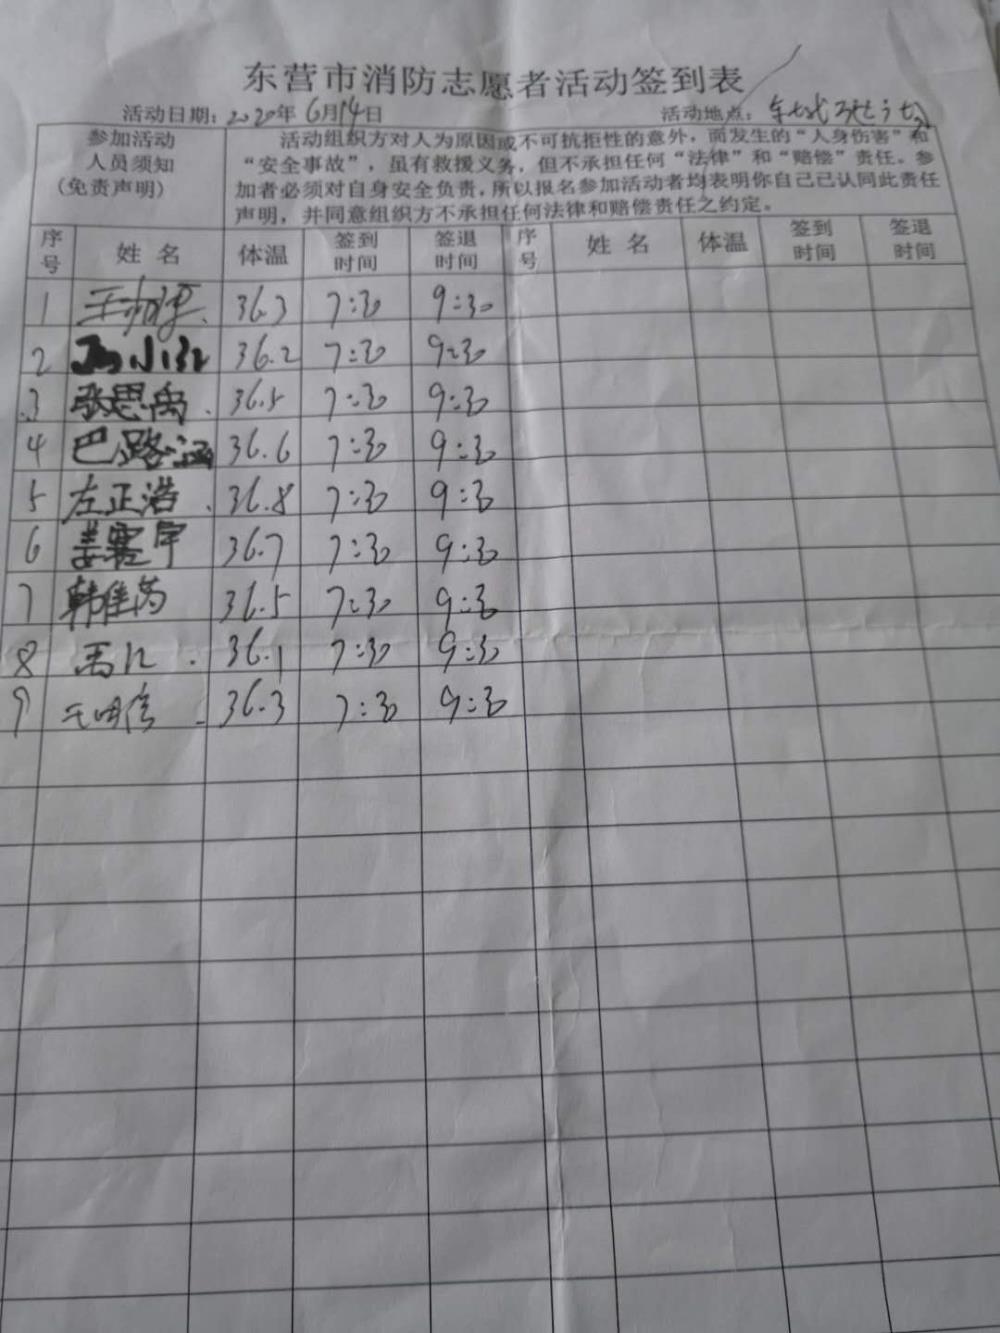 东营市消防志愿者活动签到表
活动日期：2020年6月14日 活动地点：
参加活动人员须知(免责声明)
活动组织方对人为原因或不可抗拒性的意外，而发生的“人身伤害”和
“安全事故”，虽有救援义务，但不承担任何“法律”和“赔偿”责任。参
加者必须对自身安全负责，所以报名参加活动者均表明你自己已认同此责任
声明，并同意组织方不承担任何法律和赔偿责任之约定。
序号 姓名 体温 签到时间 签退时间 序号 姓名 体温 签到时间 签退时间
1 36.3 7:30 9:30
2 36.2 7:30 9:30
3 张思禹 36.5 7:30 9:30
4 巴路涵 36.6 7:30 9:30
5 左正浩 36.8 7:30 9:30
6 姜赛宇 36.7 7:30 9:30
7 韩佳芮 36.5 7:30 9:30
8 36.1 7:30 9:30
9 36.3 7:30 9:30